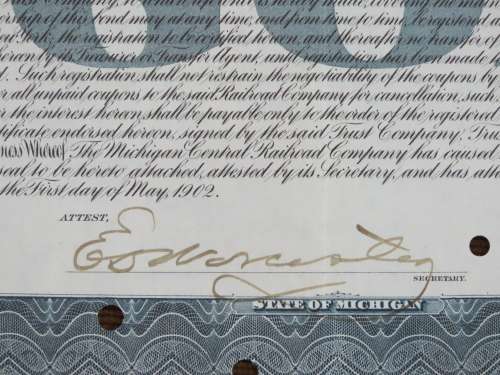 ership of this bond may at any time, and from time to time, be registered o
York; the registration to be certified hereon, and thereafter no transfer of
ment by its Treasurer or Transfer Agent, and registration has been made by
t. Such registration shall not restrain the negotiability of the coupons by
r all unpaid coupons to the said Railroad Company for cancellation, such
the interest hereon, shall be payable only to the order of the registered
rtificate endorsed hereon, signed by the said Trust Company, Tru
ness Whereof, The Michigan Central Railroad Company has caused
seal to be hereto attached, attested by its Secretary, and has als
the First day of May, 1902.
ATTEST,
E D Worcester
SECRETARY.
STATE OF MICHIGAN